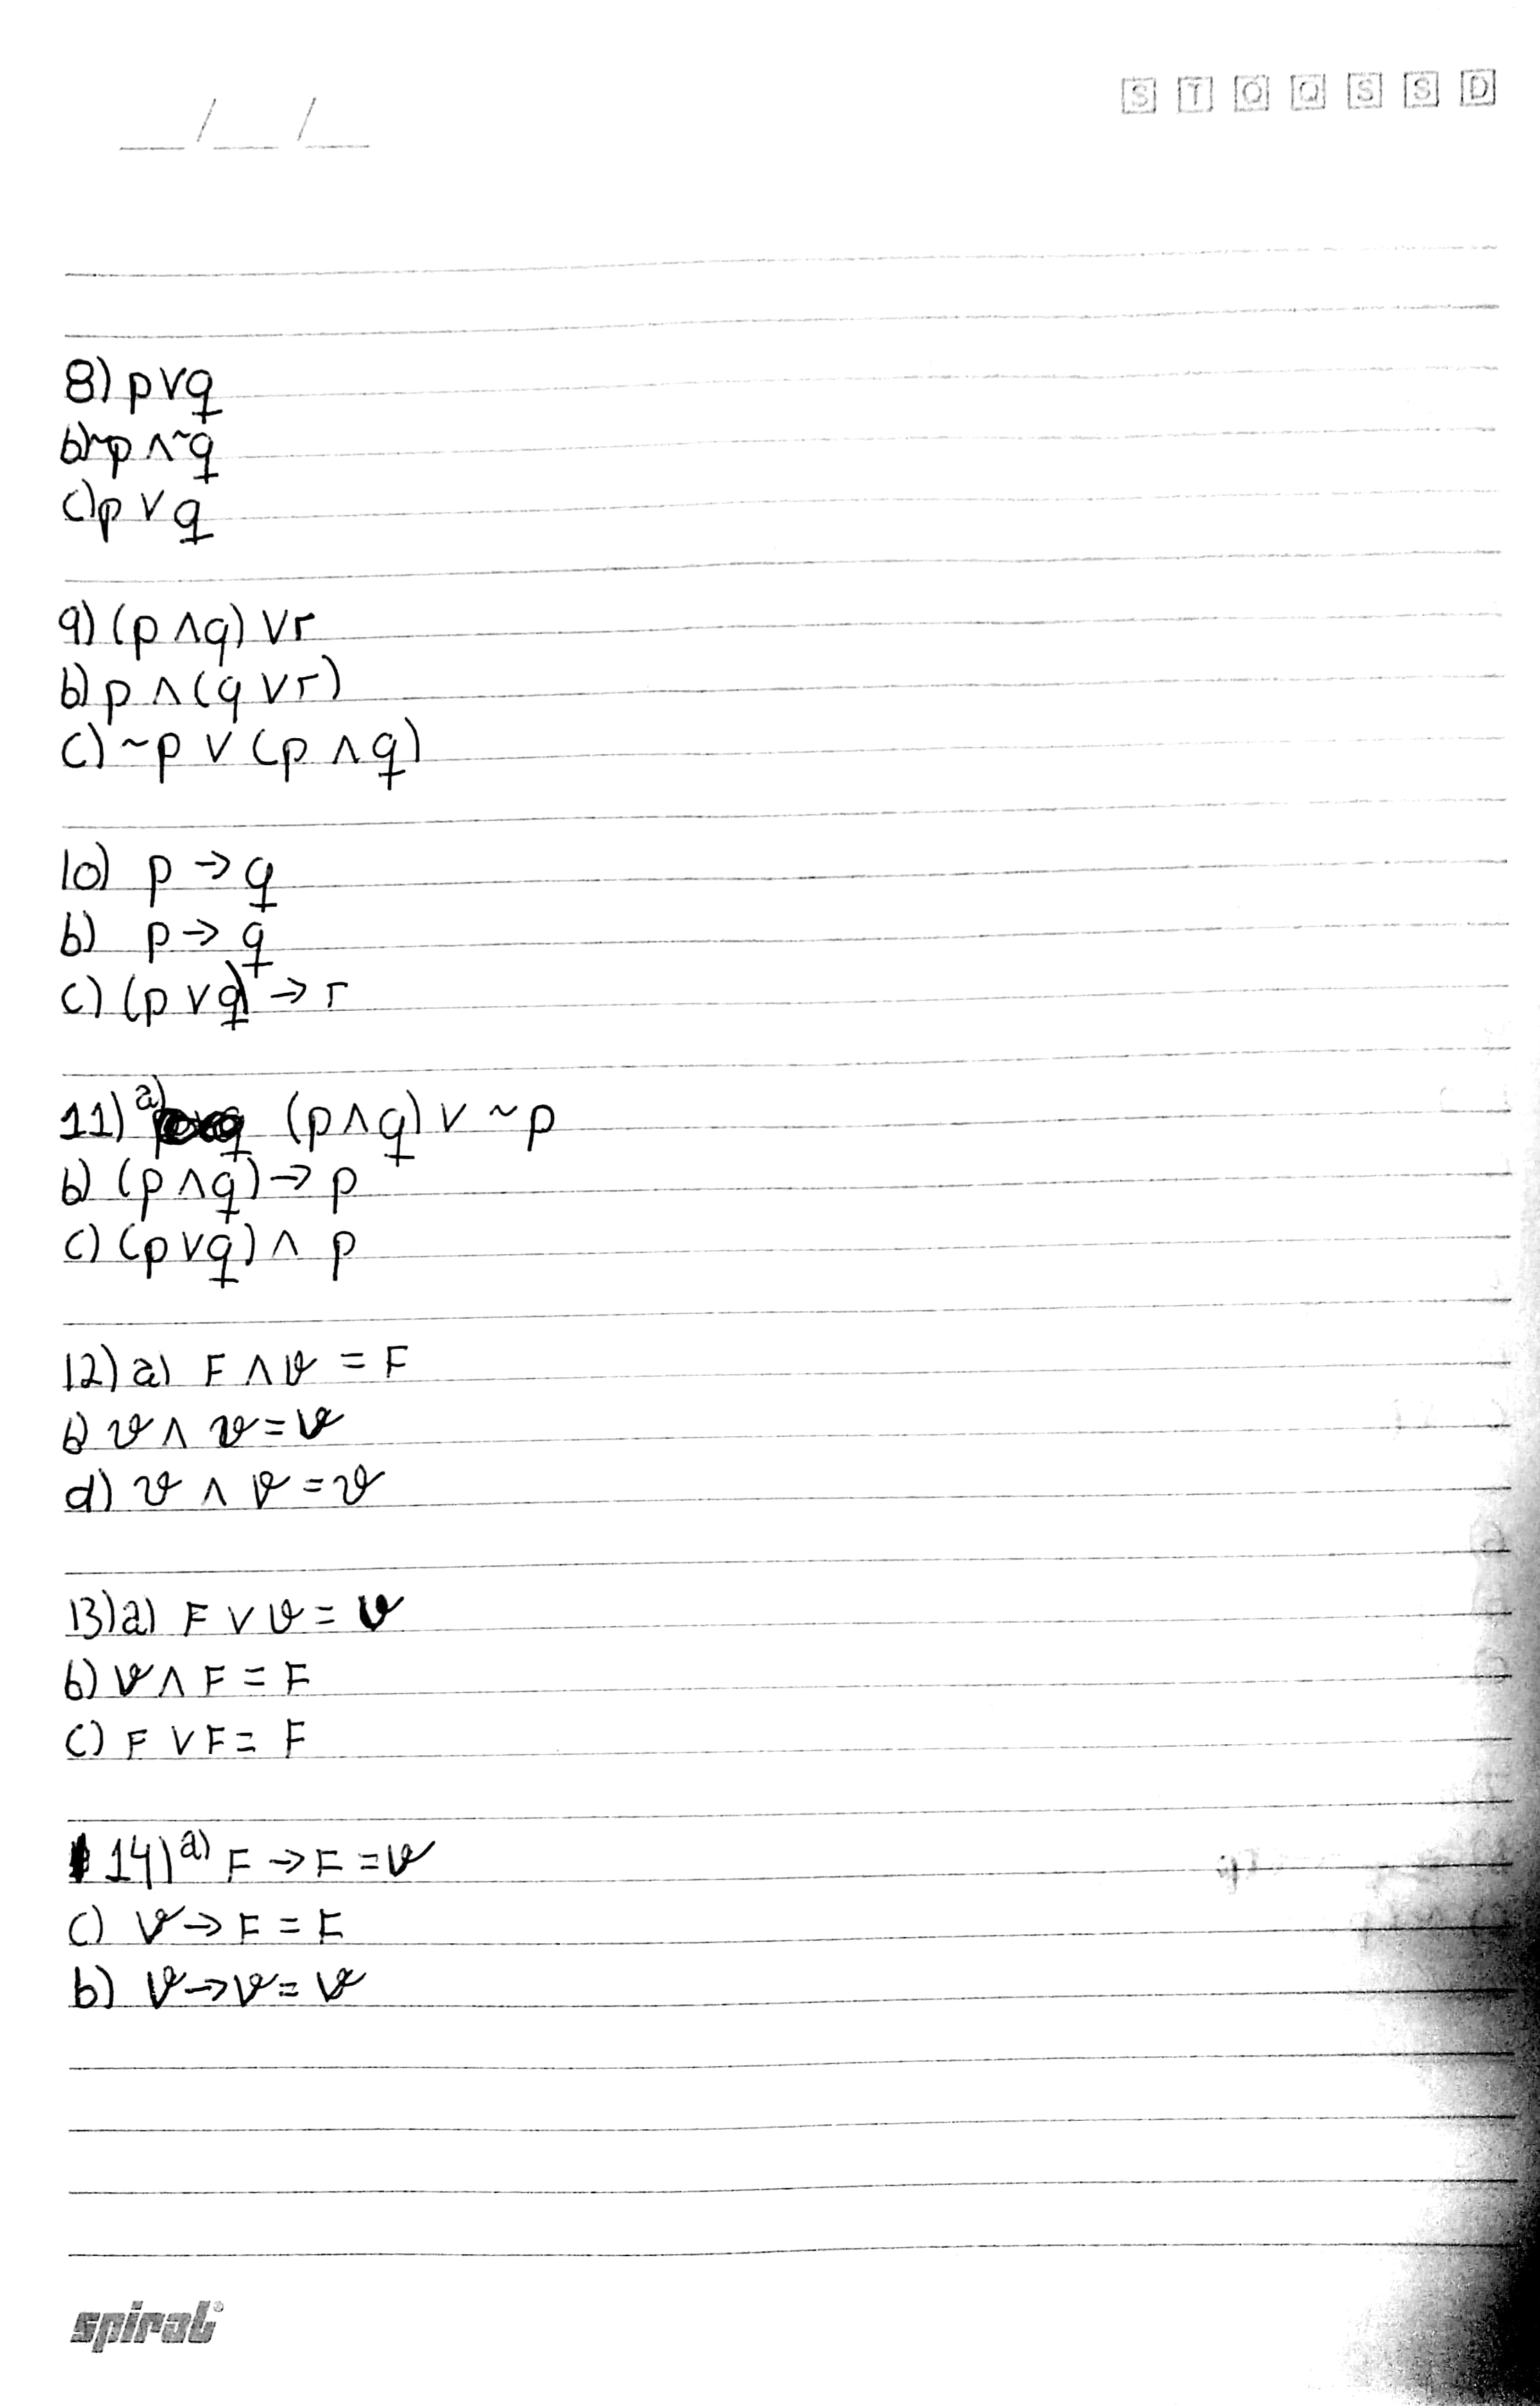 S T Q Q S S D
__/__/__
8) p∨q
b) ~p ∧ ~q
c) p ∨ q
9) (p ∧ q) ∨ r
b) p ∧ (q ∨ r)
c) ~p ∨ (p ∧ q)
10) p → q
b) p → q
c) (p ∨ q) → r
11) a) (p ∧ q) ∨ ~p
b) (p ∧ q) → p
c) (p ∨ q) ∧ p
12) a) F ∧ V = F
b) V ∧ V = V
d) V ∧ V = V
13) a) F ∨ V = V
b) V ∧ F = F
c) F ∨ F = F
14) a) F → F = V
c) V → F = F
b) V → V = V
spiral®